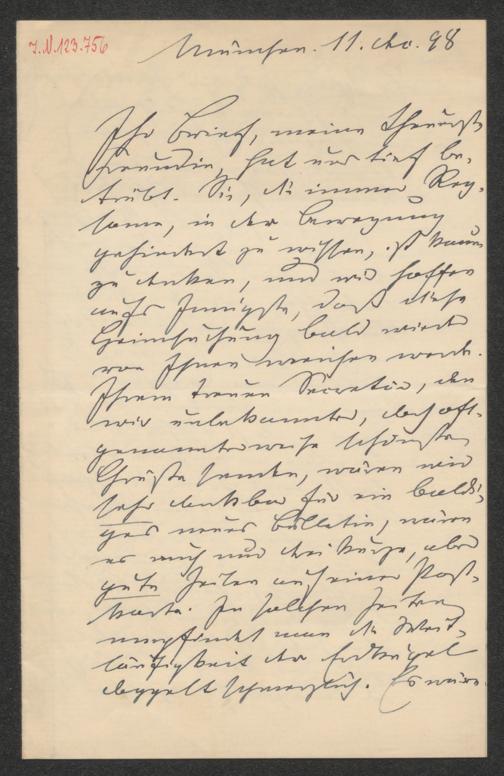 J.N.123.756
München. 11. Dec. 98
Ihr Brief, meine theuerste
Freundin, hat uns tief be-
trübt. Sie, die immer Reg-
same, in der Bewegung
gehindert zu wissen, ist kaum
zu denken, und wir hoffen
aufs Innigste, daß diese
Heimsuchung bald wieder
von Ihnen weichen werde.
Ihrem treuen Secretär, den
wir unbekannter, doch oft-
genannterweise schönsten
Grüße senden, wären wir
sehr dankbar für ein baldi-
ges neues Bulletin, wären
es auch nur drei kurze, aber
gute Zeilen auf einer Post-
karte. In solchen Zeiten
empfindet man die Weit-
läufigkeit der Erdkugel
doppelt schmerzlich. Es wäre